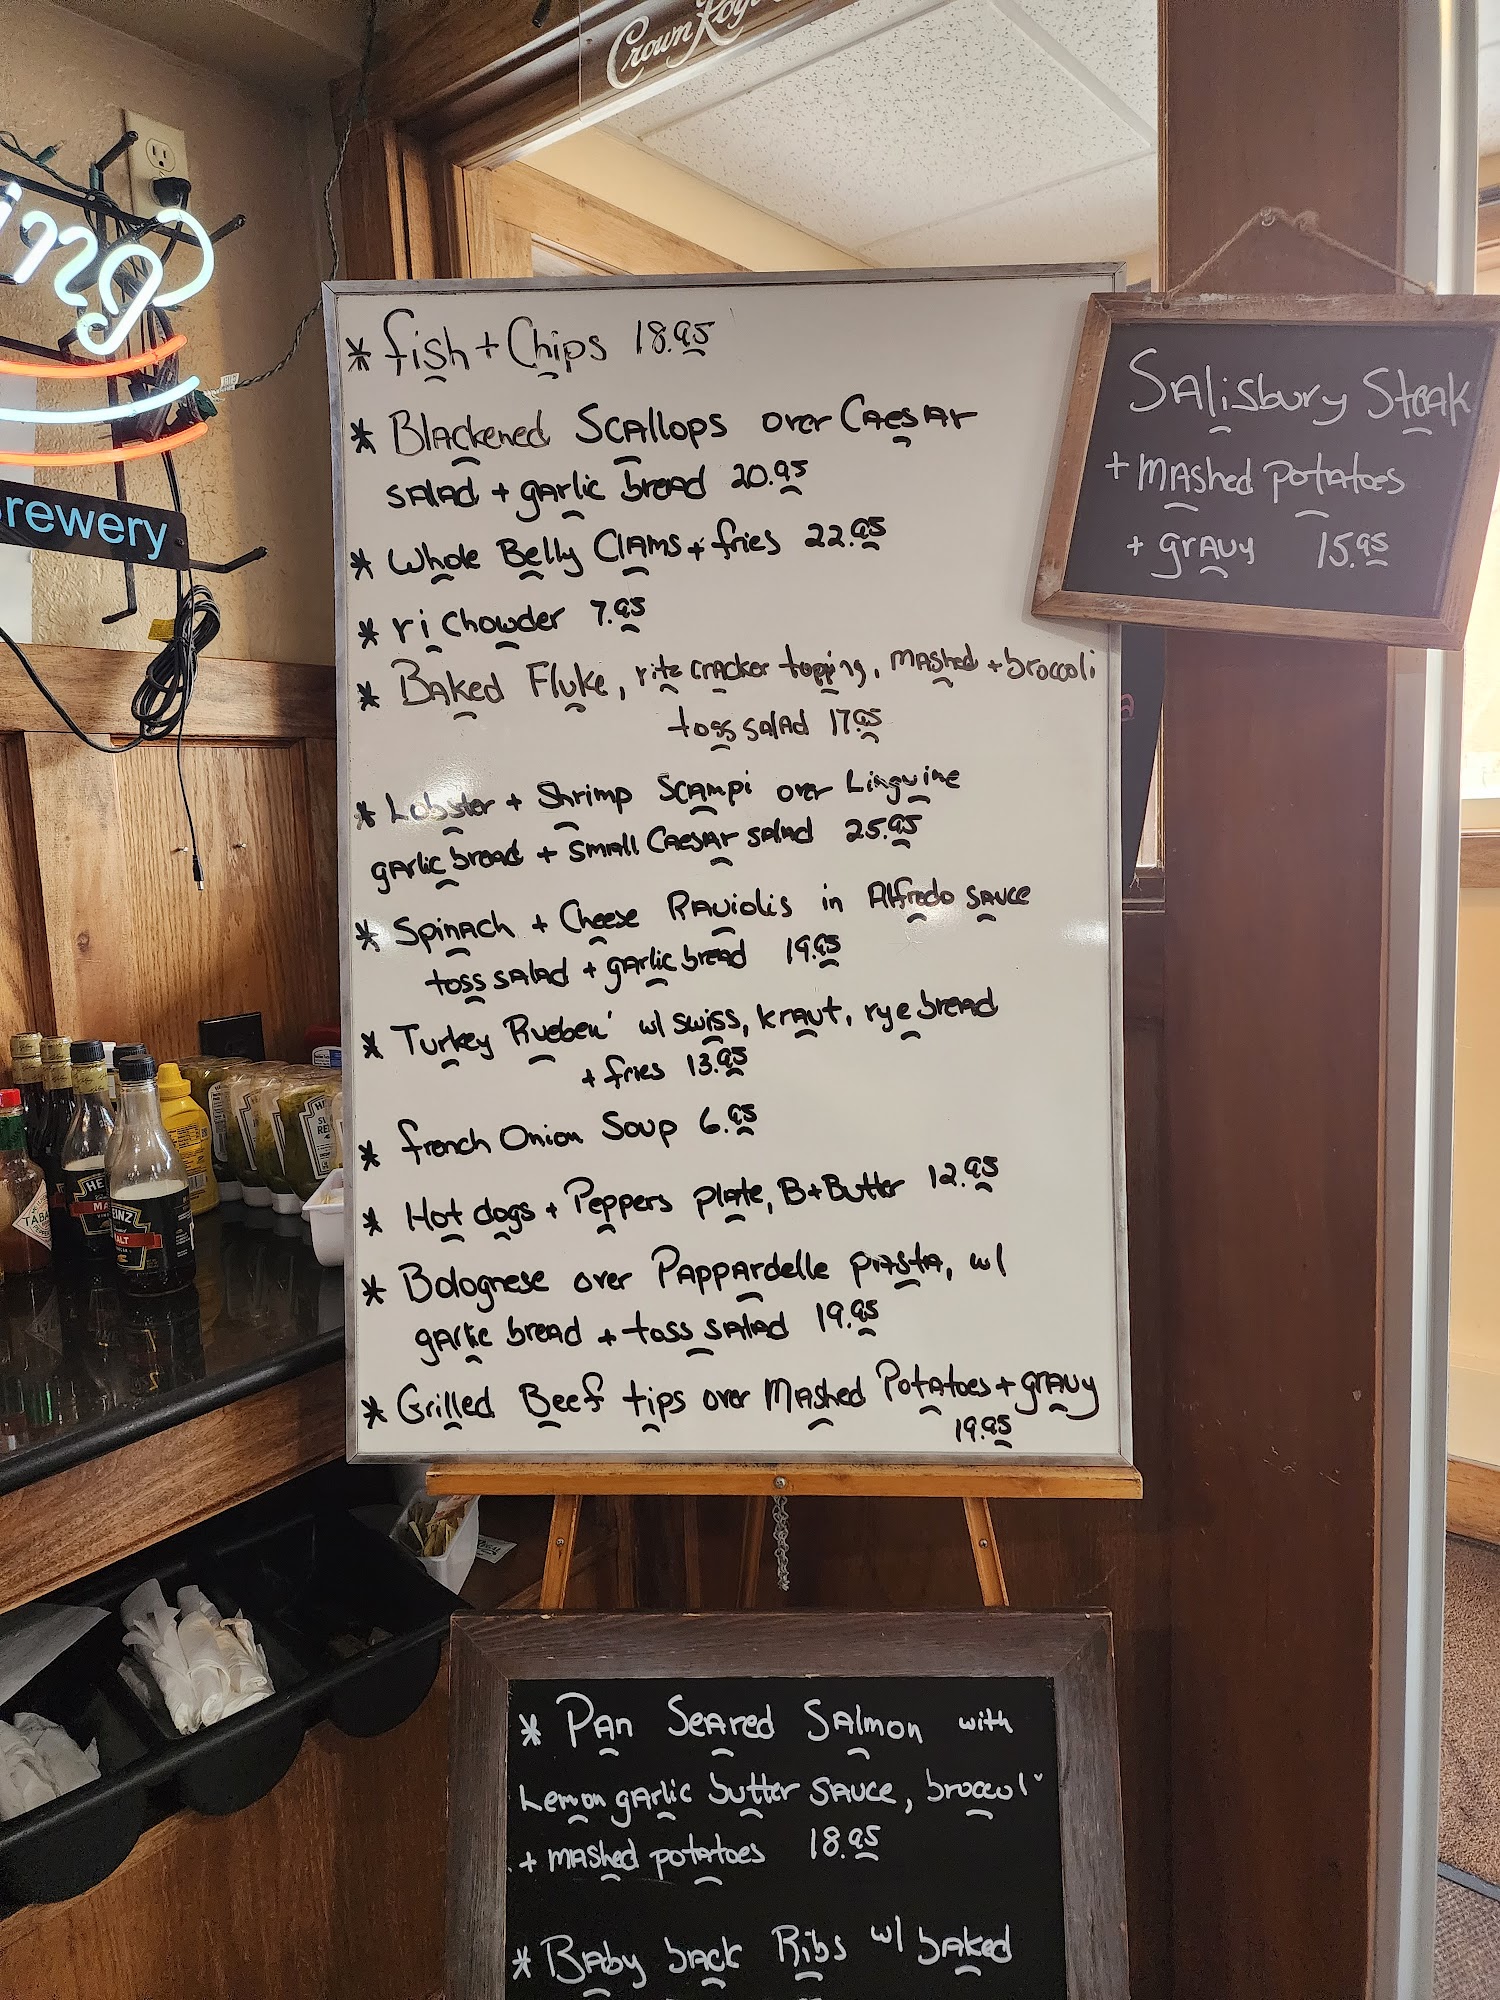 Crown Roy
ing
rewery
* fish + Chips 18.95
* Blackened Scallops over Caesar
salad + garlic bread 20.95
* Whole Belly Clams + fries 22.95
* ri Chowder 7.95
* Baked Fluke, ritz cracker topping, mashed + broccoli
toss salad 17.95
* Lobster + Shrimp Scampi over Linguine
garlic bread + small Caesar salad 25.95
* Spinach + Cheese Raviolis in Alfredo sauce
toss salad + garlic bread 19.95
* Turkey Rueben' w/ swiss, kraut, rye bread
+ fries 13.95
* french Onion Soup 6.95
* Hot dogs + Peppers plate, B+Butter 12.95
* Bolognese over Pappardelle pasta, w/
garlic bread + toss salad 19.95
* Grilled Beef tips over Mashed Potatoes + gravy
19.95
Salisbury Steak
+ mashed potatoes
+ gravy 15.95
HEINZ
MALT
* Pan Seared Salmon with
Lemon garlic butter sauce, broccoli
+ mashed potatoes 18.95
* Baby back Ribs w/ baked